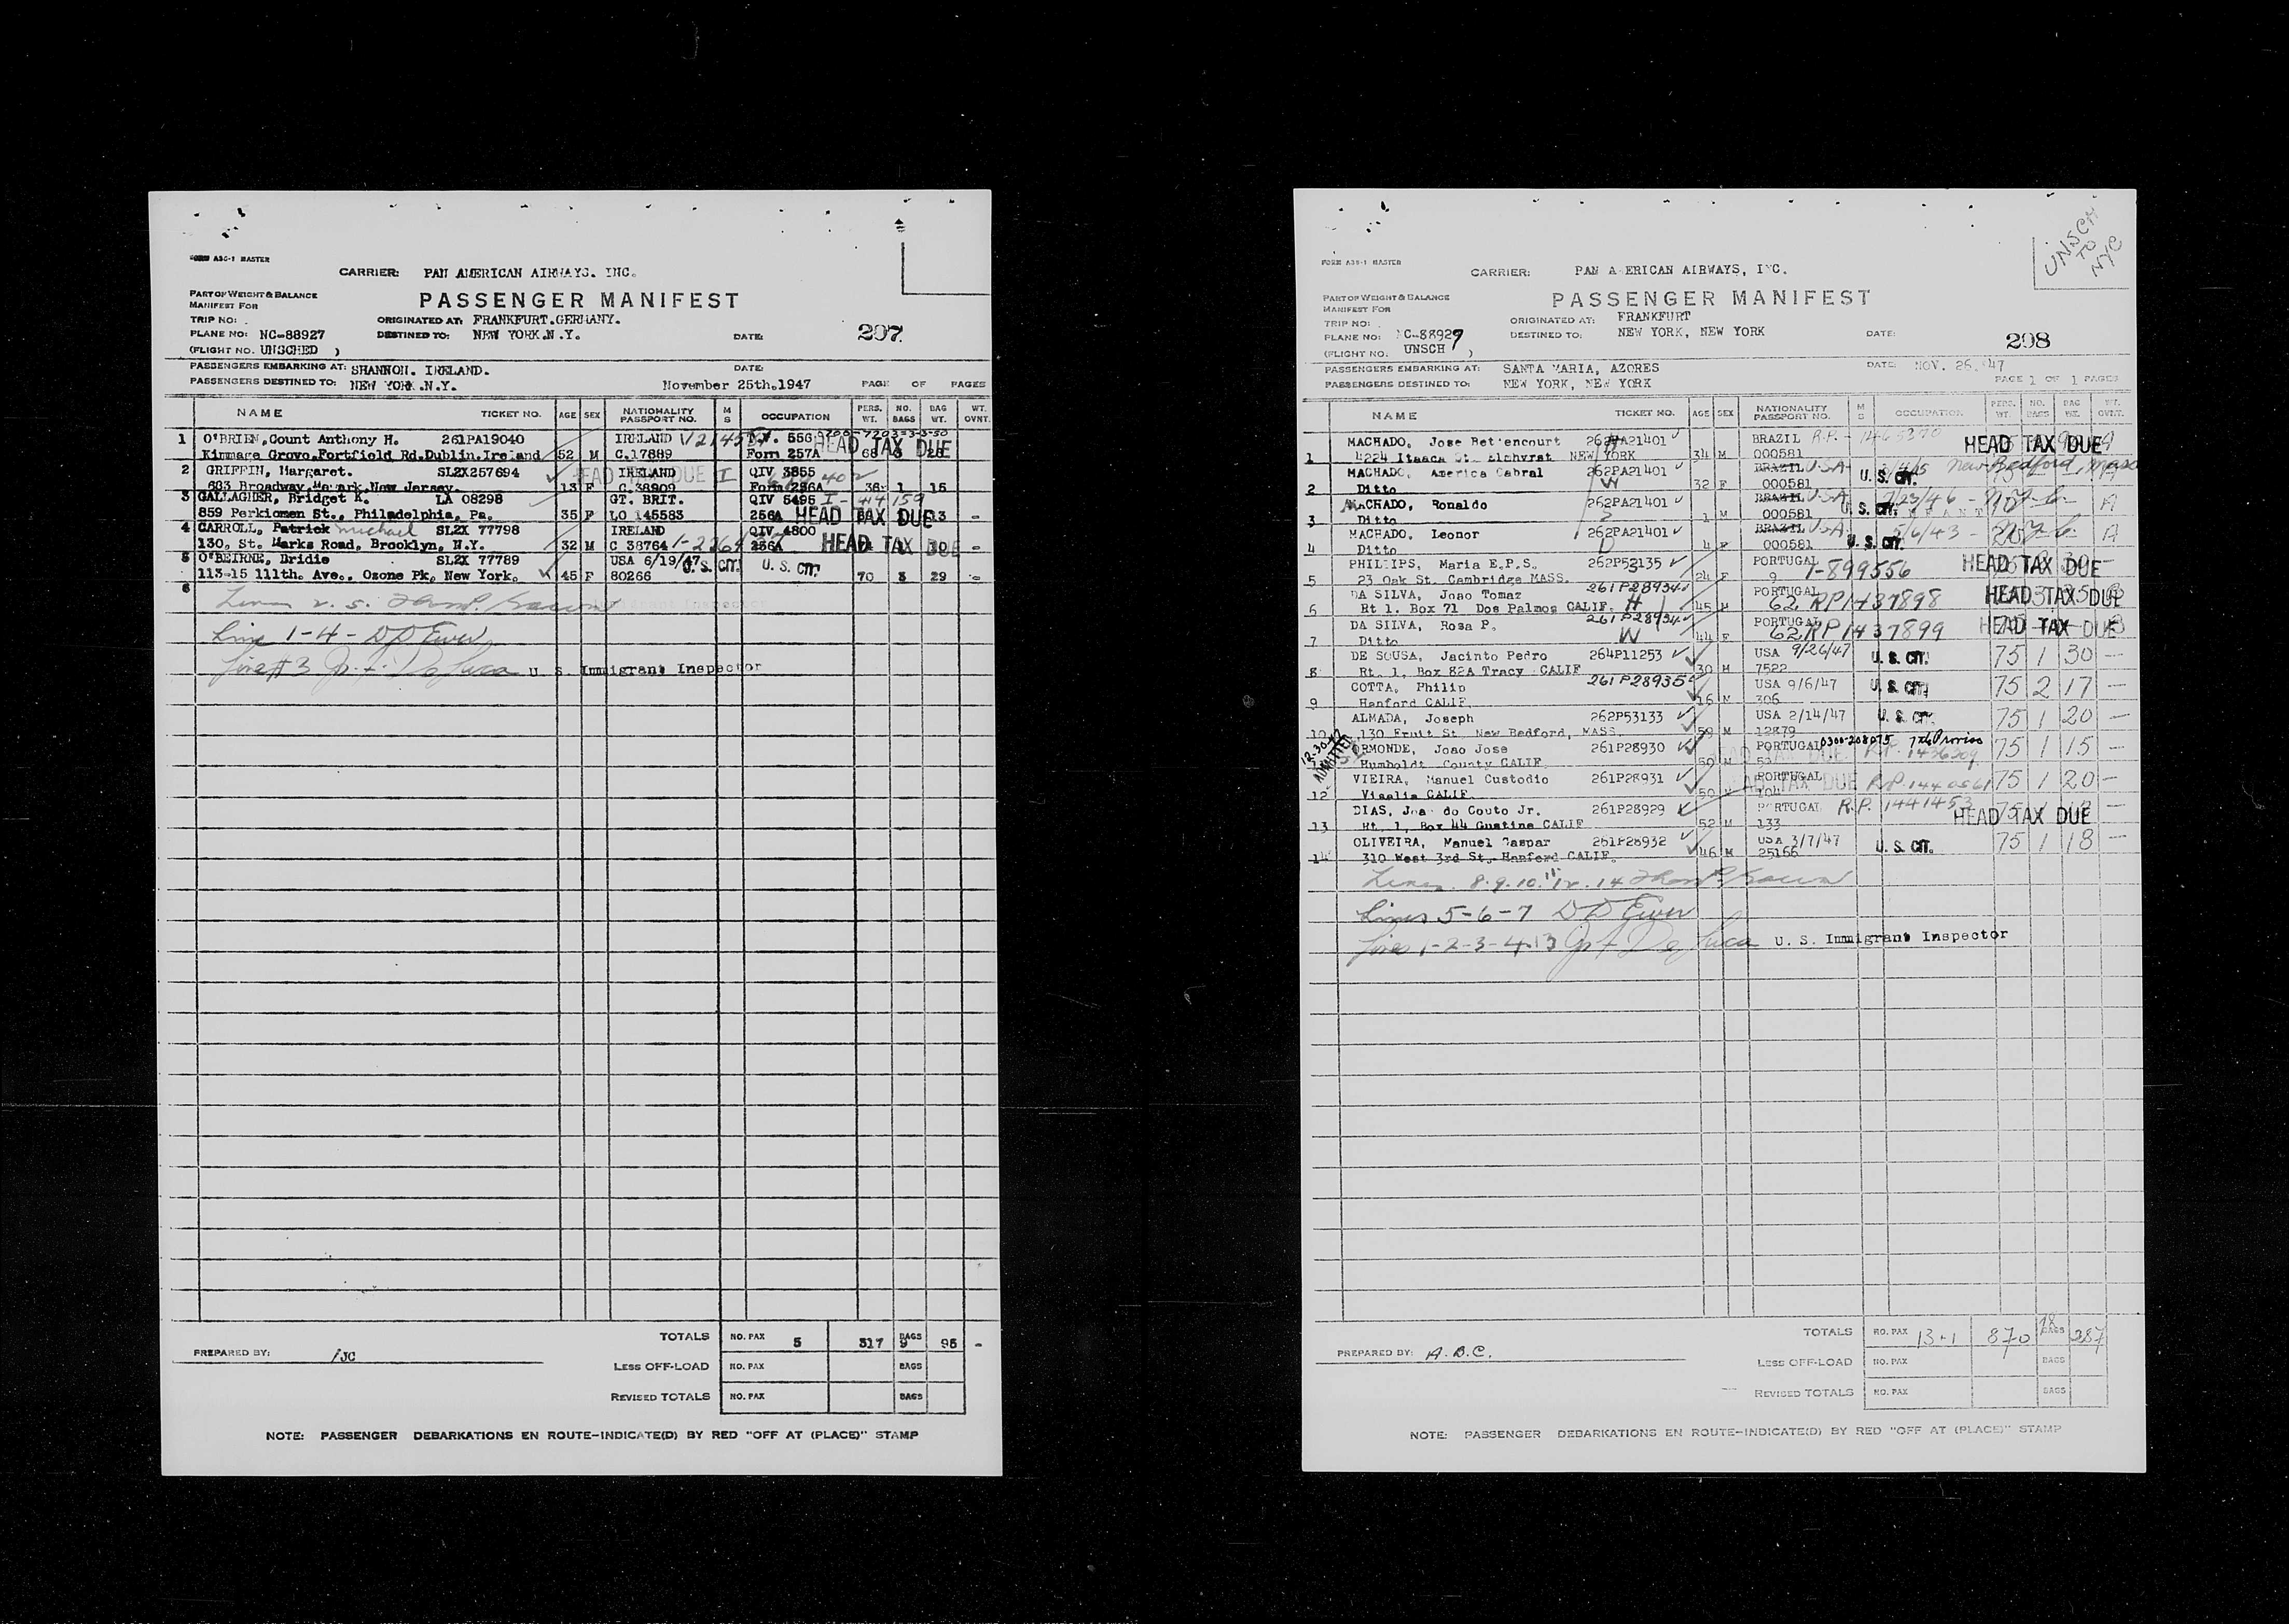 FORM A36-1 MASTER
CARRIER: PAN AMERICAN AIRWAYS. INC.
PART OF WEIGHT & BALANCE
MANIFEST FOR
PASSENGER MANIFEST
TRIP NO:
ORIGINATED AT: FRANKFURT.GERMANY.
PLANE NO: NC-88927
DESTINED TO: NEW YORK.N.Y.
DATE:
207
(FLIGHT NO. UNSCHED )
PASSENGERS EMBARKING AT: SHANNON. IRELAND.
DATE:
PASSENGERS DESTINED TO: NEW YORK.N.Y.
November 25th.1947
PAGE OF PAGES
NAME TICKET NO. AGE SEX NATIONALITY PASSPORT NO. M S OCCUPATION PERS. WT. NO. BAGS BAG WT. WT. OVNT.
1 O'BRIEN,Count Anthony H. 261PA19040 IRELAND T.V. 556 HEAD TAX DUE
Kimmage Grove.Fortfield Rd.Dublin.Ireland 52 M C.17889 Form 257A 68 3 28
2 GRIFFIN, Margaret. SL2X257694 IRELAND QIV 3855
683 Broadway.Newark.New Jersey. 13 F C.38909 Form 256A 36 1 15
3 GALLAGHER, Bridget K. LA 08298 GT. BRIT. QIV 5495 I-44159
859 Perkiomen St., Philadelphia, Pa. 35 F LO 145583 256A HEAD TAX DUE
4 CARROLL, Patrick Michael SL2X 77798 IRELAND QIV 4800
130, St. Marks Road, Brooklyn, N.Y. 32 M C 38764 256A HEAD TAX DUE
5 O'BEIRNE, Bridie SL2X 77789 USA 6/19/47 U. S. CIT. U. S. CIT.
113-15 111th. Ave., Ozone Pk, New York. 45 F 80266 70 3 29 -
6
Line 1-4 - D D Ewer
Line #3 U. S. Immigrant Inspector
TOTALS NO. PAX 5 317 BAGS 9 95 -
PREPARED BY: /JC
LESS OFF-LOAD NO. PAX BAGS
REVISED TOTALS NO. PAX BAGS
NOTE: PASSENGER DEBARKATIONS EN ROUTE-INDICATE(D) BY RED "OFF AT (PLACE)" STAMP
UNSCH
TO
NYC
FORM A36-1 MASTER
CARRIER: PAN A ERICAN AIRWAYS, INC.
PART OF WEIGHT & BALANCE
MANIFEST FOR
PASSENGER MANIFEST
TRIP NO:
ORIGINATED AT: FRANKFURT
PLANE NO: NC-88927
DESTINED TO: NEW YORK, NEW YORK
DATE:
208
(FLIGHT NO. UNSCH )
PASSENGERS EMBARKING AT: SANTA MARIA, AZORES
DATE: NOV. 26, '47
PASSENGERS DESTINED TO: NEW YORK, NEW YORK
PAGE 1 OF 1 PAGES
NAME TICKET NO. AGE SEX NATIONALITY PASSPORT NO. M S OCCUPATION PERS. WT. NO. BAGS BAG WT. WT. OVNT.
MACHADO, Jose Bettencourt 262PA21401 BRAZIL R.P. - 1465370 HEAD TAX DUE
1 4224 Itaaca St. Elmhurst NEW YORK 34 M 000581
MACHADO, America Cabral 262PA21401 BRAZIL U.S.A. U. S. CIT. New Bedford, Mass
2 Ditto W 32 F 000581
MACHADO, Ronaldo 262PA21401 BRAZIL U.S.A. 7/23/46 U. S. CIT. A
3 Ditto S 1 M 000581
MACHADO, Leonor 262PA21401 BRAZIL U.S.A. 5/6/43 U. S. CIT. A
4 Ditto D 4 F 000581
PHILLIPS, Maria E.P.S. 262P53135 PORTUGAL I-899556 HEAD TAX DUE
5 23 Oak St. Cambridge MASS. 24 F 9
DA SILVA, Joao Tomaz 261P28934 PORTUGAL RP1437898 HEAD TAX DUE
6 Rt 1. Box 71 Dos Palmos CALIF. H 45 M 62
DA SILVA, Rosa P. 261P28934 PORTUGAL RP1437899 HEAD TAX DUE
7 Ditto W 44 F 62
DE SOUSA, Jacinto Pedro 264P11253 USA 9/26/47 U. S. CIT. 75 1 30 -
8 Rt. 1, Box 82A Tracy CALIF 30 M 7522
COTTA, Philip 261P28935 USA 9/6/47 U. S. CIT. 75 2 17 -
9 Hanford CALIF. 16 M 306
ALMADA, Joseph 262P53133 USA 2/14/47 U. S. CIT. 75 1 20 -
10 130 Fruit St. New Bedford, MASS. 59 M 12879
ADMITTED ORMONDE, Joao Jose 261P28930 PORTUGAL 0300-208075 7th Proviso 75 1 15 -
Humboldt County CALIF. 50 M
VIEIRA, Manuel Custodio 261P28931 PORTUGAL HEAD TAX DUE 75 1 20 -
12 Visalia CALIF. 50 M 104
DIAS, Joao do Couto Jr. 261P28929 PORTUGAL R.P. 1441453 HEAD TAX DUE
13 Rt. 1, Box 44 Gustine CALIF 52 M 133
OLIVEIRA, Manuel Gaspar 261P28932 USA 3/7/47 U. S. CIT. 75 1 18 -
14 310 West 3rd St. Hanford CALIF. 46 M 25166
Lines 8.9.10.11.12.14
Lines 5-6-7 D D Ewer
Lines 1-2-3-4.13 U. S. Immigrant Inspector
TOTALS NO. PAX 13+1 870 18 BAGS 287
PREPARED BY: A.B.C.
LESS OFF-LOAD NO. PAX BAGS
REVISED TOTALS NO. PAX BAGS
NOTE: PASSENGER DEBARKATIONS EN ROUTE-INDICATE(D) BY RED "OFF AT (PLACE)" STAMP